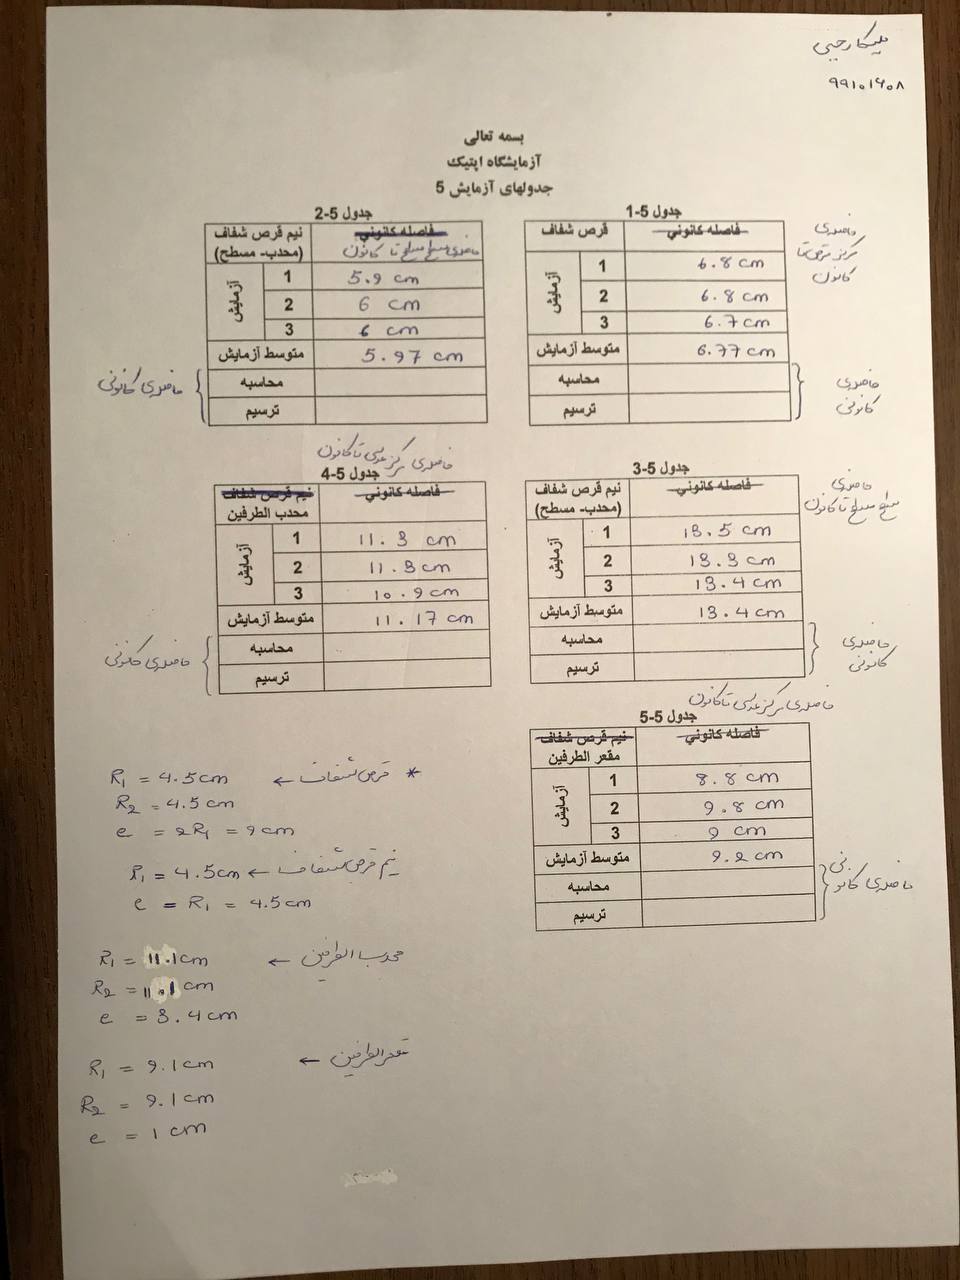 ملیکا رجبی
۹۹۱۰۱۶۰۸
بسمه تعالی
آزمایشگاه اپتیک
جدولهای آزمایش 5
جدول 5-1
قرص شفاف
فاصله کانوني
فاصله‌ی مرکز قرص تا کانون
آزمایش
1 6.8 cm
2 6.8 cm
3 6.7 cm
متوسط آزمایش 6.77 cm
محاسبه
ترسیم
فاصله‌ی کانونی
جدول 5-2
نیم قرص شفاف (محدب- مسطح)
فاصله کانوني
فاصله‌ی سطح مسطح تا کانون
آزمایش
1 5.9 cm
2 6 cm
3 6 cm
متوسط آزمایش 5.97 cm
محاسبه
ترسیم
فاصله‌ی کانونی
جدول 5-3
نیم قرص شفاف (محدب- مسطح)
فاصله کانوني
فاصله‌ی سطح مسطح تا کانون
آزمایش
1 13.5 cm
2 13.3 cm
3 13.4 cm
متوسط آزمایش 13.4 cm
محاسبه
ترسیم
فاصله‌ی کانونی
فاصله‌ی مرکز عدسی تا کانون
جدول 5-4
نیم قرص شفاف
محدب الطرفین
فاصله کانوني
آزمایش
1 11.3 cm
2 11.3 cm
3 10.9 cm
متوسط آزمایش 11.17 cm
محاسبه
ترسیم
فاصله‌ی کانونی
فاصله‌ی مرکز عدسی تا کانون
جدول 5-5
نیم قرص شفاف
مقعر الطرفین
فاصله کانوني
آزمایش
1 8.8 cm
2 9.8 cm
3 9 cm
متوسط آزمایش 9.2 cm
محاسبه
ترسیم
فاصله‌ی کانونی
* قرص شفاف ← R₁ = 4.5 cm
R₂ = 4.5 cm
e = 2R₁ = 9 cm
نیم قرص شفاف ← R₁ = 4.5 cm
e = R₁ = 4.5 cm
محدب الطرفین ← R₁ = 11.1 cm
R₂ = 11.1 cm
e = 3.4 cm
مقعر الطرفین ← R₁ = 9.1 cm
R₂ = 9.1 cm
e = 1 cm